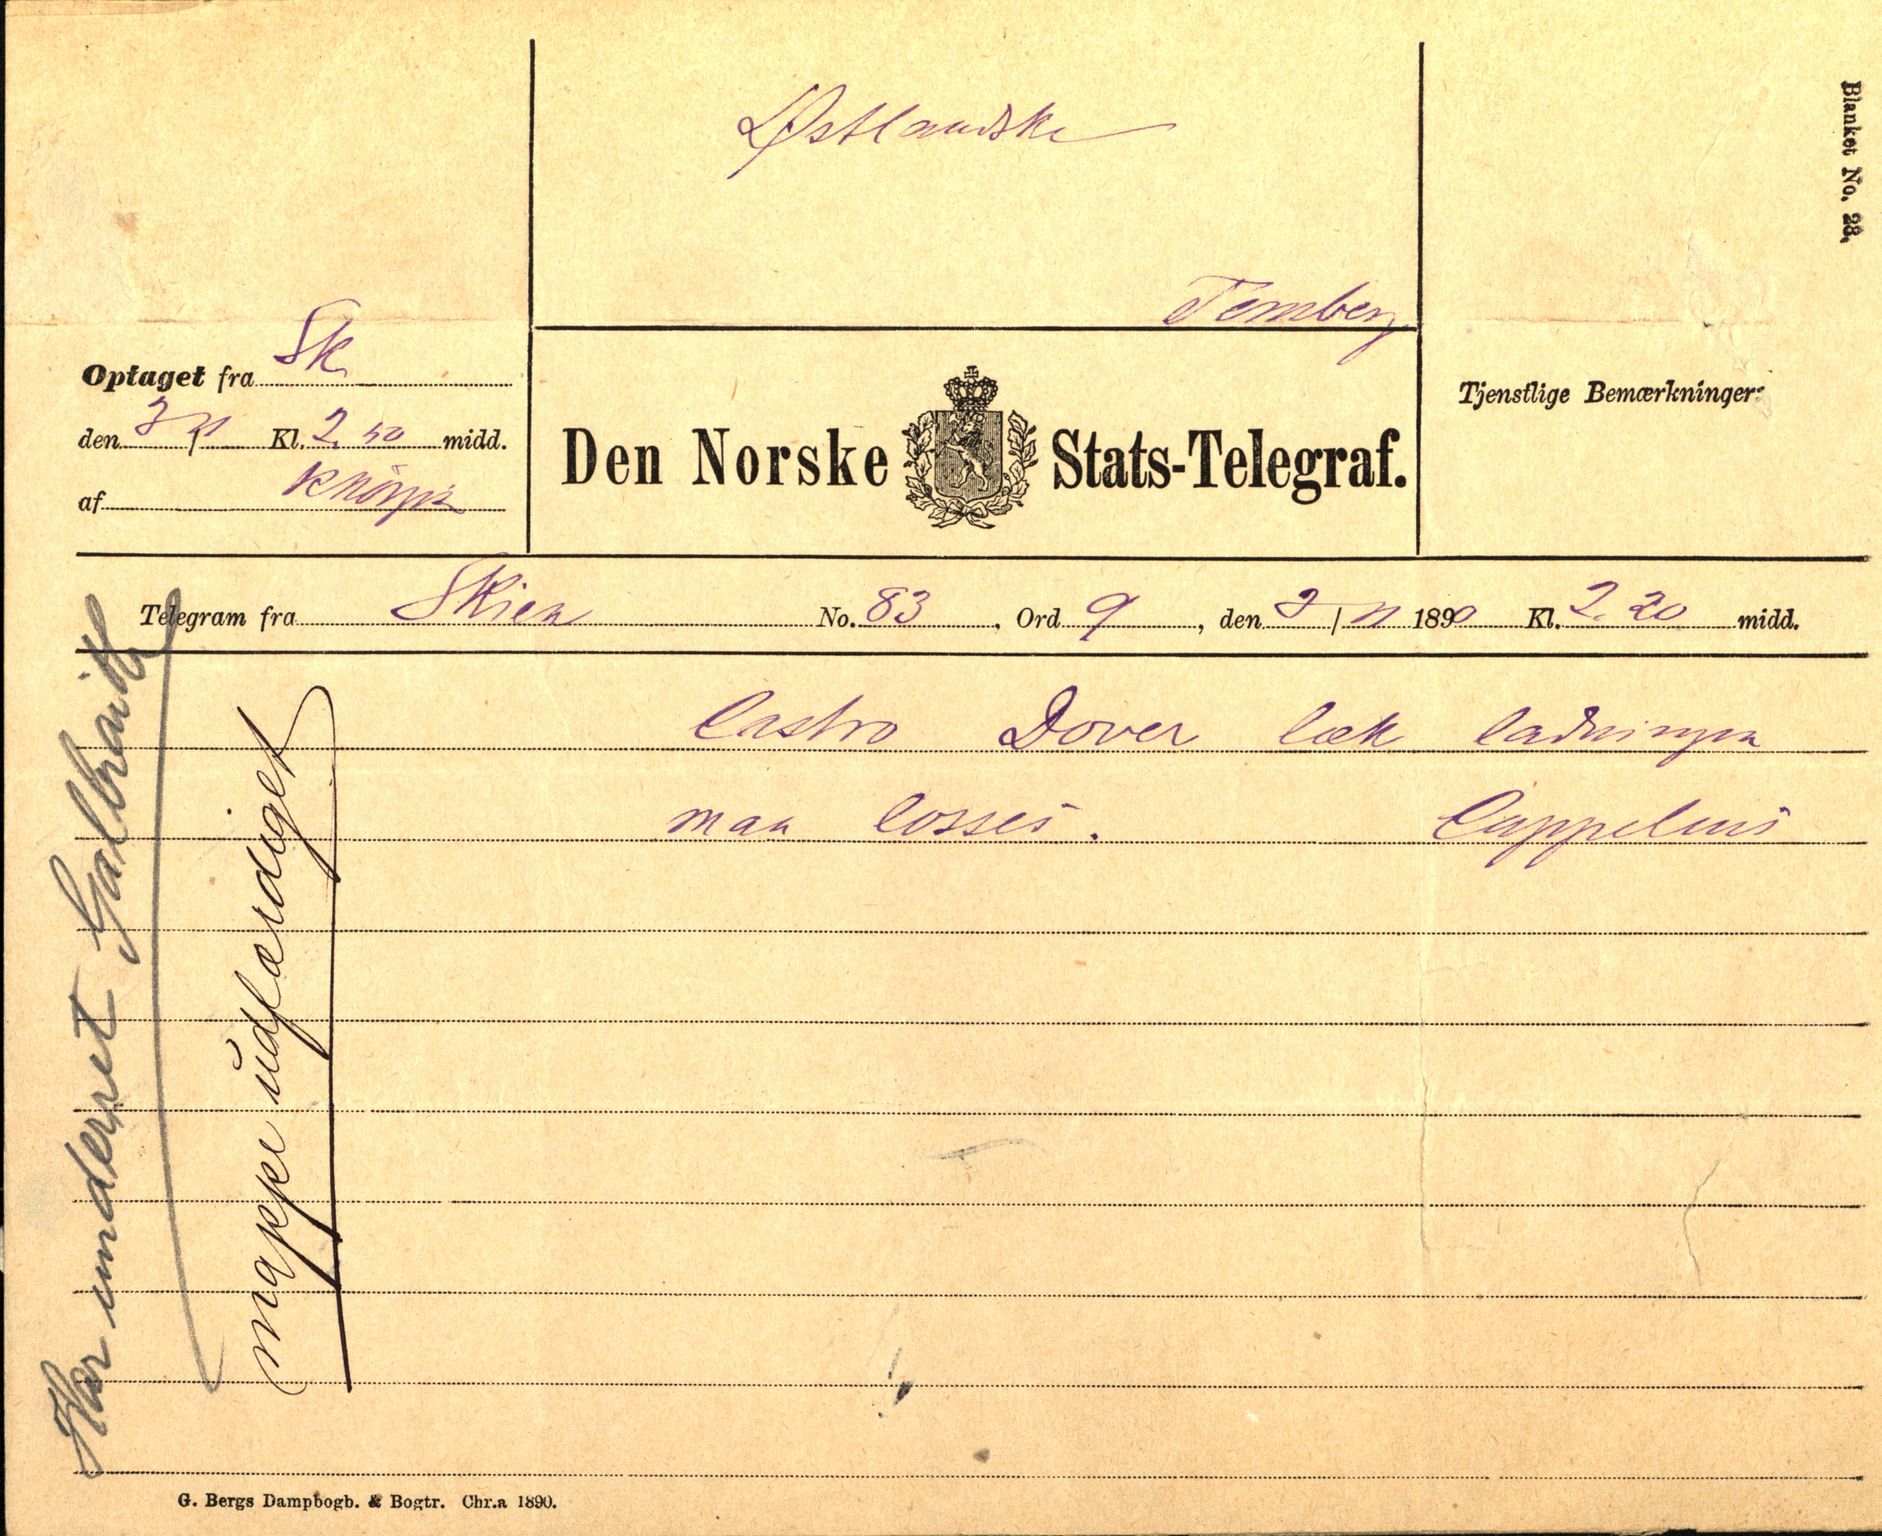 Blanket No. 28.
Østlandske
Tønsberg
Optaget fra Sk
den 3/11 Kl. 2.50 midd.
af
Den Norske Stats-Telegraf.
Tjenstlige Bemærkninger:
Telegram fra Skien No. 83, Ord 9, den 3/11 1890 Kl. 2.20 midd.
Castro Dover læk ladningen
maa losses. Cappelens
Har underret Galbraith
mappe udfærdiget
G. Bergs Dampbogb. & Bogtr. Chr.a 1890.